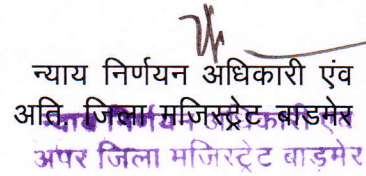 न्याय निर्णयन अधिकारी एंव
अति. जिला मजिस्ट्रेट बाडमेर
न्याय निर्णयन अधिकारी एवं
अपर जिला मजिस्ट्रेट बाड़मेर